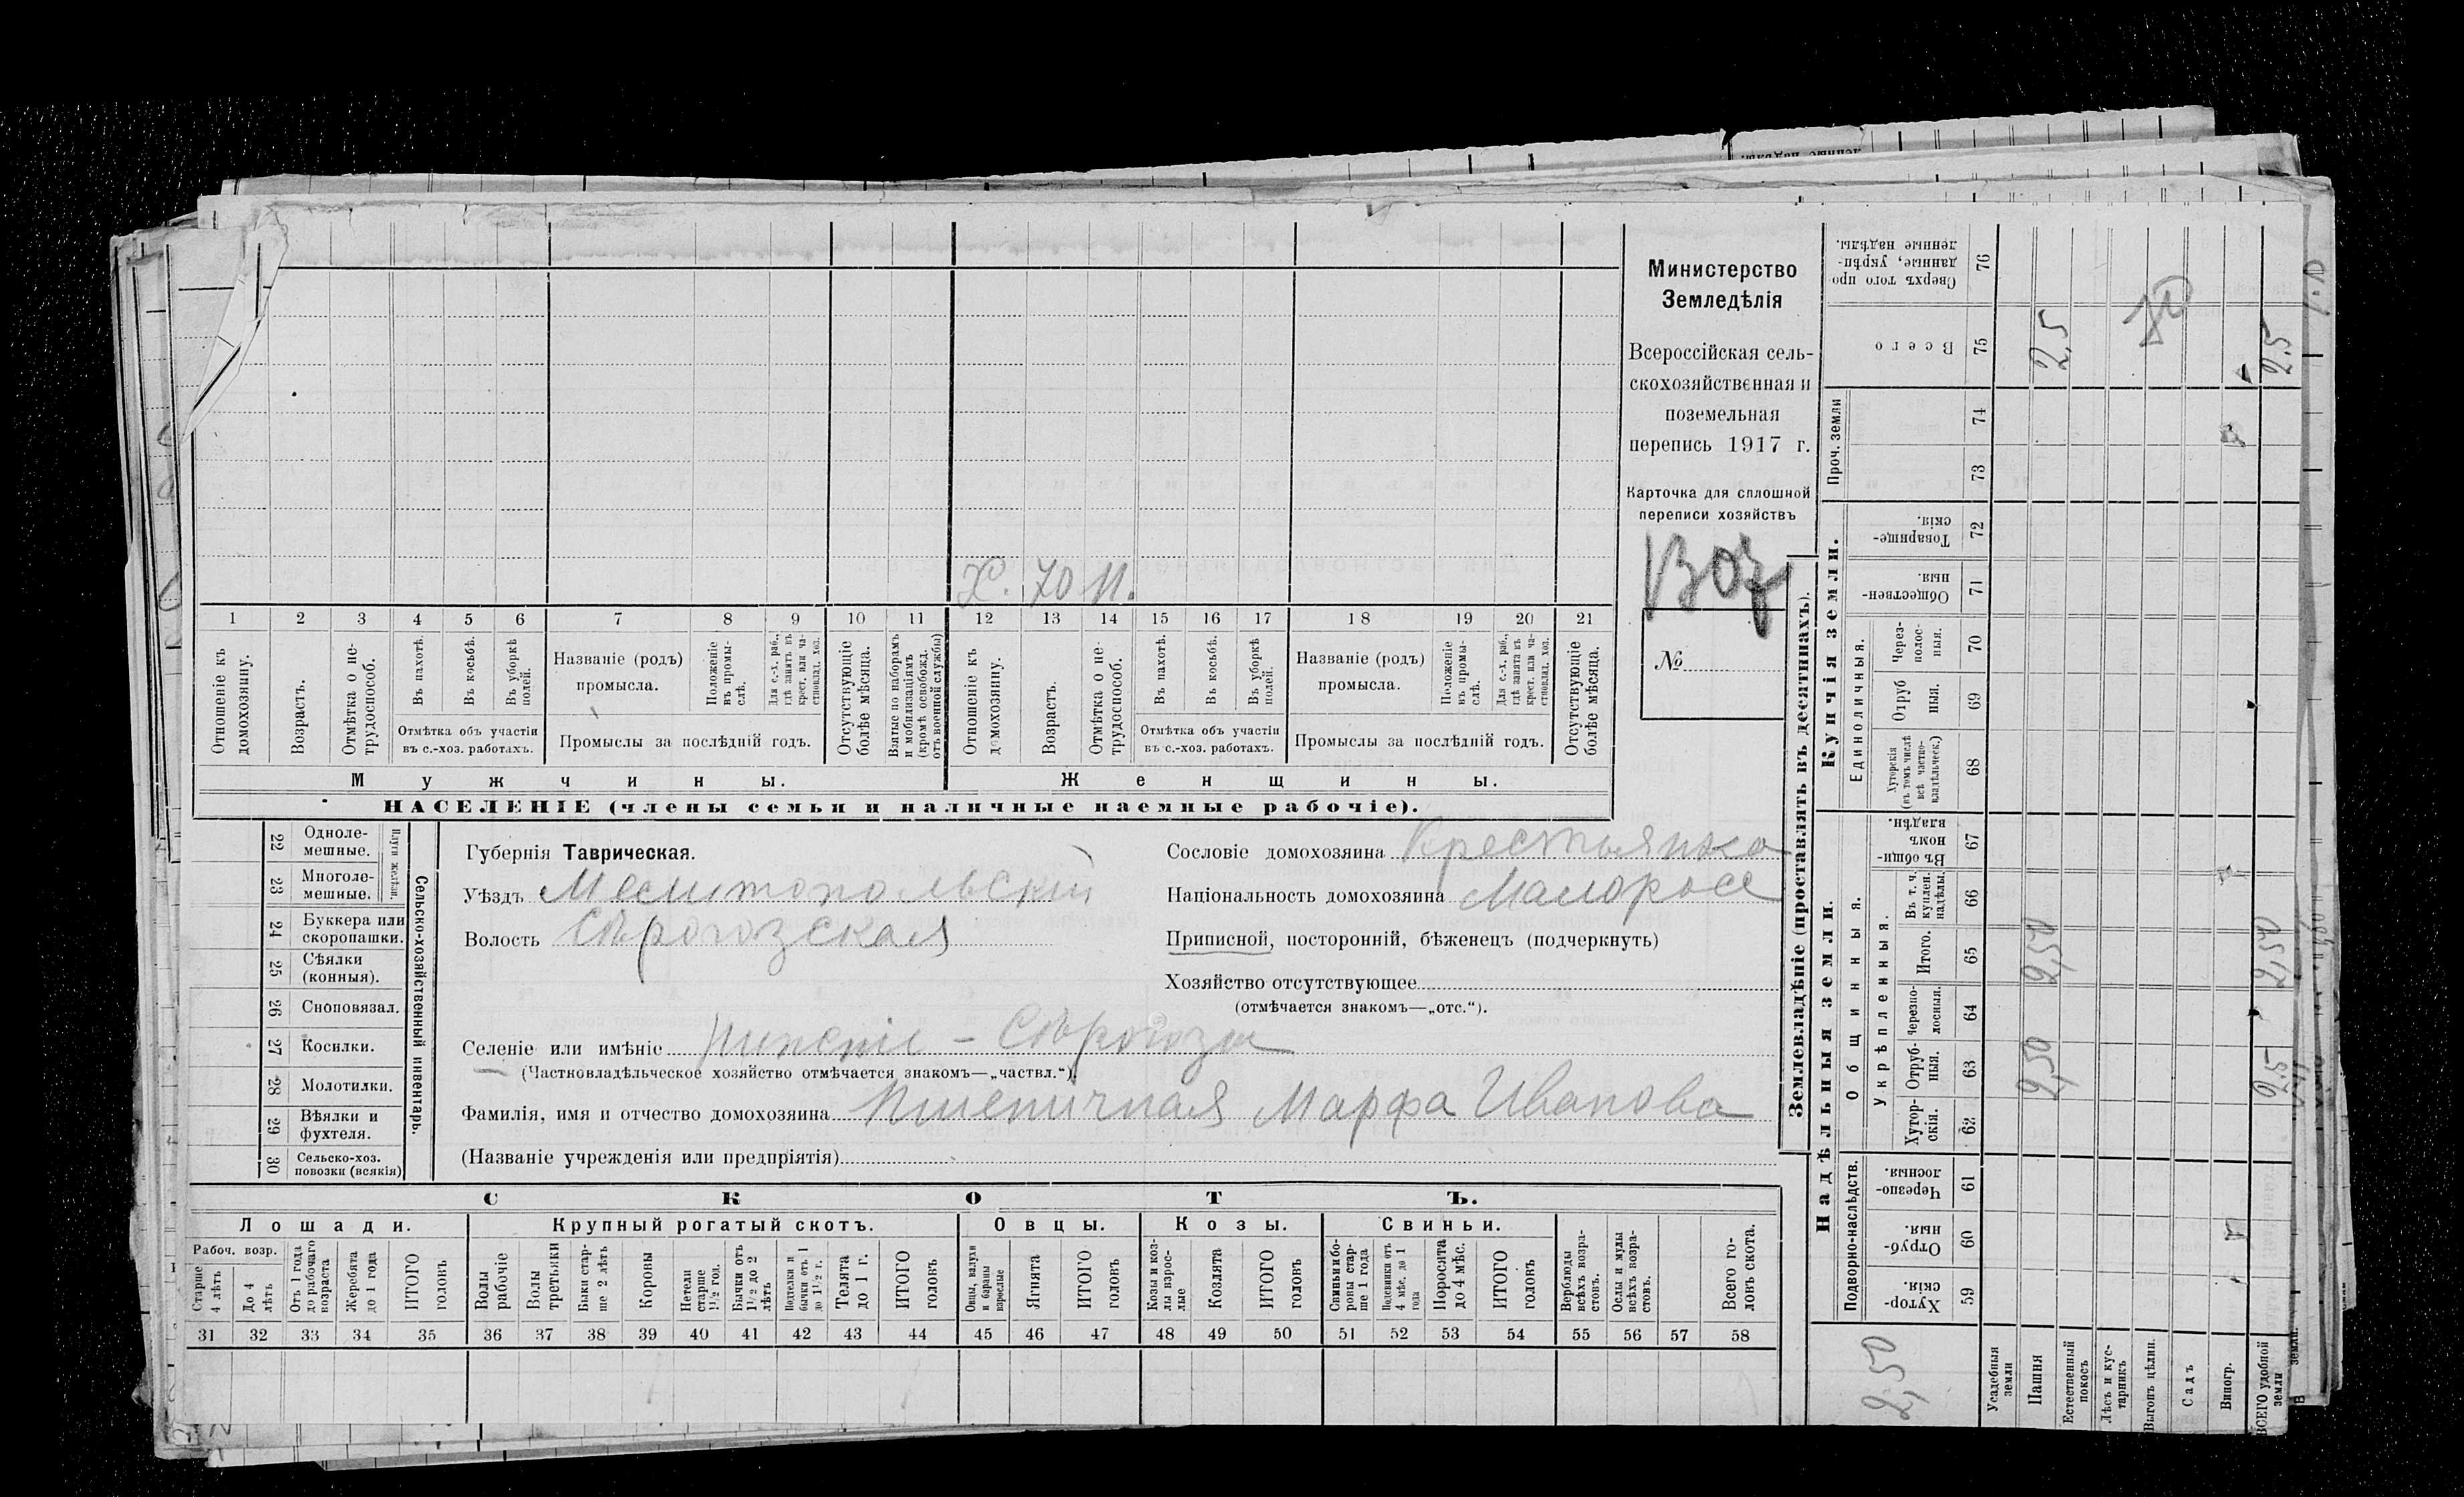 Х. 70 н.
1 2 3 4 5 6 7 8 9 10 11 12 13 14 15 16 17 18 19 20 21
Отношеніе къ домохозяину.
Возрастъ.
Отмѣтка о не-трудоспособ.
Въ пахотѣ.
Въ косьбѣ.
Въ уборкѣ полей.
Отмѣтка объ участіи
въ с.-хоз. работахъ.
Названіе (родъ)
промысла.
Положеніе въ промы-слѣ.
Для с.-х. раб., гдѣ занятъ въ крест. или ча-стновлад. хоз.
Промыслы за послѣдній годъ.
Отсутствующіе болѣе мѣсяца.
Взятые по наборамъ и мобилизаціямъ (кромѣ освобожд. отъ военной службы)
Отношеніе къ домохозяину.
Возрастъ.
Отмѣтка о не-трудоспособ.
Въ пахотѣ.
Въ косьбѣ.
Въ уборкѣ полей.
Отмѣтка объ участіи
въ с.-хоз. работахъ.
Названіе (родъ)
промысла.
Положеніе въ промы-слѣ.
Для с.-х. раб., гдѣ занята въ крест. или ча-стновлад. хоз.
Промыслы за послѣдній годъ.
Отсутствующіе болѣе мѣсяца.
Мужчины.
Женщины.
НАСЕЛЕНІЕ (члены семьи и наличные наемные рабочіе).
Министерство
Земледѣлія
Всероссійская сель-
скохозяйственная и
поземельная
перепись 1917 г.
Карточка для сплошной
переписи хозяйствъ
№
22 Одноле-мешные.
23 Многоле-мешные.
Плуги желѣзн.
24 Буккера или скоропашки.
25 Сѣялки (конныя).
26 Сноповязал.
27 Косилки.
28 Молотилки.
29 Вѣялки и фухтеля.
30 Сельско-хоз. повозки (всякія)
Сельско-хозяйственный инвентарь.
Губернія Таврическая.
Уѣздъ Мелитопольскій
Волость Сѣрогозская
Сословіе домохозяина Крестьянка
Національность домохозяина Малоросс
Приписной, посторонній, бѣженецъ (подчеркнуть)
Хозяйство отсутствующее
(отмѣчается знакомъ—„отс.“).
Селеніе или имѣніе Нижніе - Сѣрогозы
(Частновладѣльческое хозяйство отмѣчается знакомъ—„частвл.“).
Фамилія, имя и отчество домохозяина Пшеничная Марфа Иванова
(Названіе учрежденія или предпріятія)
СКОТЪ.
Лошади. Крупный рогатый скотъ. Овцы. Козы. Свиньи.
Рабоч. возр.
Старше 4 лѣтъ
До 4 лѣтъ
Отъ 1 года до рабочаго возраста
Жеребята до 1 года
ИТОГО головъ
Волы рабочіе
Волы третьяки
Быки стар-ше 2 лѣтъ
Коровы
Нетели старше 1½ год.
Бычки отъ 1½ до 2 лѣтъ
Подтелки и бычки отъ 1 до 1½ г.
Телята до 1 г.
ИТОГО головъ
Овцы, валухи и бараны взрослые
Ягнята
ИТОГО головъ
Козы и коз-лы взрос-лые
Козлята
ИТОГО головъ
Свиньи и бо-ровы стар-ше 1 года
Подсвинки отъ 4 мѣс. до 1 года
Поросята до 4 мѣс.
ИТОГО головъ
Верблюды всѣхъ возра-стовъ.
Ослы и мулы всѣхъ возра-стовъ.
Всего го-ловъ скота.
31 32 33 34 35 36 37 38 39 40 41 42 43 44 45 46 47 48 49 50 51 52 53 54 55 56 57 58
Землевладѣніе (проставлять въ десятинахъ).
Надѣльныя земли.
Купчія земли.
Проч. земли
Подворно-наслѣдств.
Общинныя.
Укрѣпленныя.
Единоличныя.
Хутор-скія. 59
Отруб-ныя. 60
Черезпо-лосныя 61
Хутор-скія. 62
Отруб-ныя. 63
Черезпо-лосныя. 64
Итого. 65
Въ т. ч. куплен. надѣлы. 66
Въ общи-номъ владѣн. 67
Хуторскія (въ томъ числѣ всѣ частно-владѣльческ.) 68
Отруб ныя. 69
Через-полос-ныя. 70
Обществен-ныя. 71
Товарище-скія. 72
73
74
Всего 75
Сверхъ того про-данные, укрѣп-ленные надѣлы. 76
2,50
Усадебныя земли
Пашня 2,50 2,50 2,5
Естественный покосъ
Лѣсъ и кус-тарникъ
Выгонъ цѣлин.
Садъ
Виногр.
ВСЕГО удобной земли 2,5 2,50 2,5